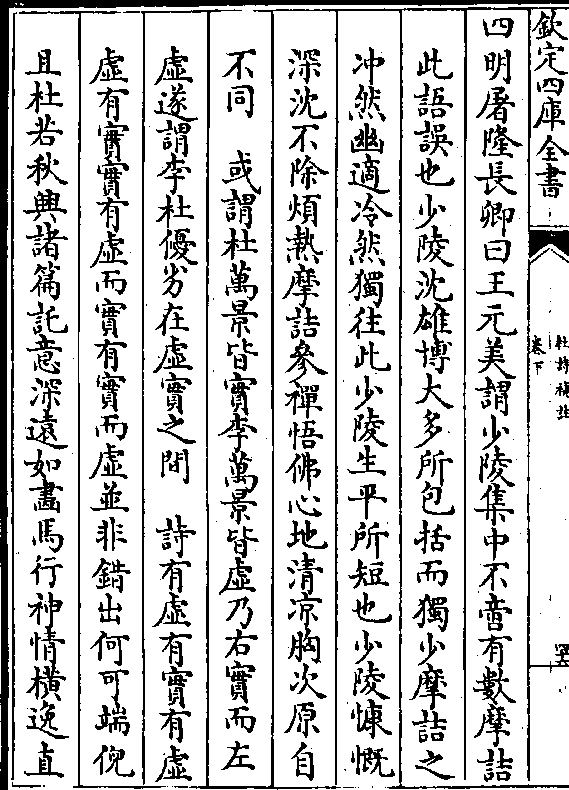 欽定四庫全書
杜詩攟
卷下
四明屠隆長卿曰王元美謂少陵集中不啻有數摩詰
此語誤也少陵沈雄博大多所包括而獨少摩詰之
冲然幽適泠然獨往此少陵生平所短也少陵慷慨
深沈不除煩熱摩詰參禪悟佛心地清凉胸次原自
不同　或謂杜萬景皆實李萬景皆虛乃右實而左
虛遂謂李杜優劣在虛實之間　詩有虛有實有虛
虛有實實有虛而實有實而虛並非錯出何可端倪
且杜若秋興諸篇託意深遠如畵馬行神情橫逸直